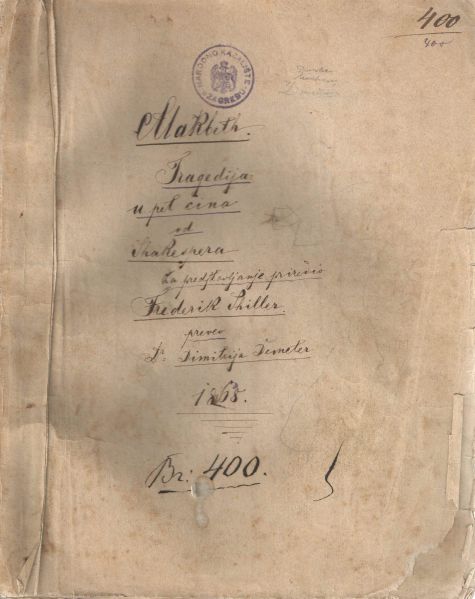 400
400
NARODNO KAZALIŠTE U ZAGREBU
Makbeth.
Tragedija
u pet čina
od
Shakespera
za predstavljanje priredio
Frederik Shiller.
preveo
Dr. Dimitrija Demeter
1868.
Br: 400.